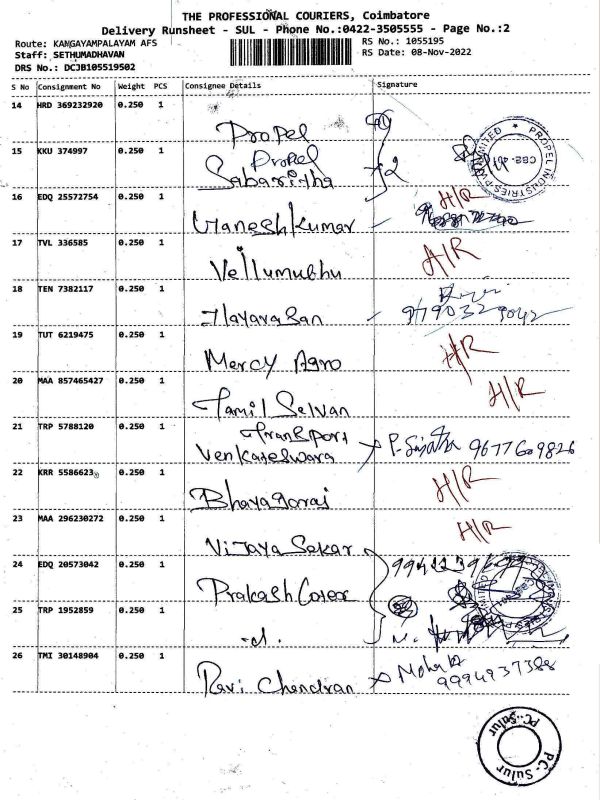 THE PROFESSIONAL COURIERS, Coimbatore
Delivery Runsheet - SUL - Phone No.:0422-3505555 - Page No.:2
Route: KANGAYAMPALAYAM AFS
RS No.: 1055195
Staff: SETHUMADHAVAN
RS Date: 08-Nov-2022
DRS No.: DCJB105519502
S No Consignment No Weight PCS Consignee Details Signature
14 HRD 369232920 0.250 1 Propel
15 KKU 374997 0.250 1 Propel
Sabaritha
16 EDQ 25572754 0.250 1 Ganesh Kumar H/R
17 TVL 336585 0.250 1 Vellumuthu A/R
18 TEN 7382117 0.250 1 Ilayarasan
19 TUT 6219475 0.250 1 Mercy Agro H/R
20 MAA 857465427 0.250 1 Tamil Selvan H/R
21 TRP 5788120 0.250 1 Transport
Venkateswara 9677609826
22 KRR 5586623 0.250 1 H/R
23 MAA 296230272 0.250 1 Vijaya Sekar H/R
24 EDQ 20573042 0.250 1 Prakash
25 TRP 1952859 0.250 1
26 TMI 30148904 0.250 1 Ravi Chendran Mohan
9994937388
PROPEL INDUSTRIES
PC-Sulur
PC-Sulur